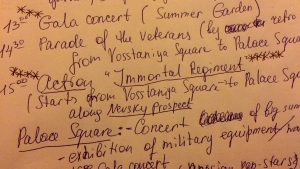 13:00 Gala concert (Summer Garden)
14:30 Parade of the Veterans (by retro
from Vosstaniya Square to Palace Squa
15:00 Action "Immortal Regiment"
(Starts from Vosstaniya Square to Palace Sq
along Nevsky Prospect
Palace Square: - Concert of by sum
- exhibition of military equipment
Gala concert pop-stars)